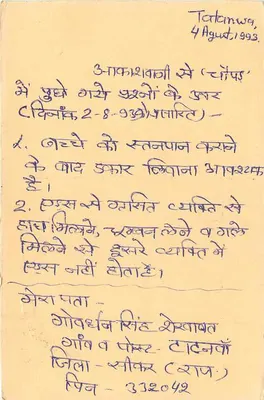 Tatanwa,
4 Agust, 1993.
आकाशवाणी से "चौपड़"
में पुछे गये प्रश्नों के उत्तर
(दिनांक 2-8-93 को प्रसारित) -
1. बच्चे को स्तनपान कराने
के बाद डकार लिवाना आवश्यक
है।
2. एड्स से ग्रसित व्यक्ति से
हाथ मिलाने, चूम्बन लेने व गले
मिलने से दूसरे व्यक्ति में
एड्स नहीं होता है।
मेरा पता -
गोवर्धन सिंह शेखावत
गांव व पोस्ट - टाटनवाँ
जिला - सीकर (राज.)
पिन - 332042